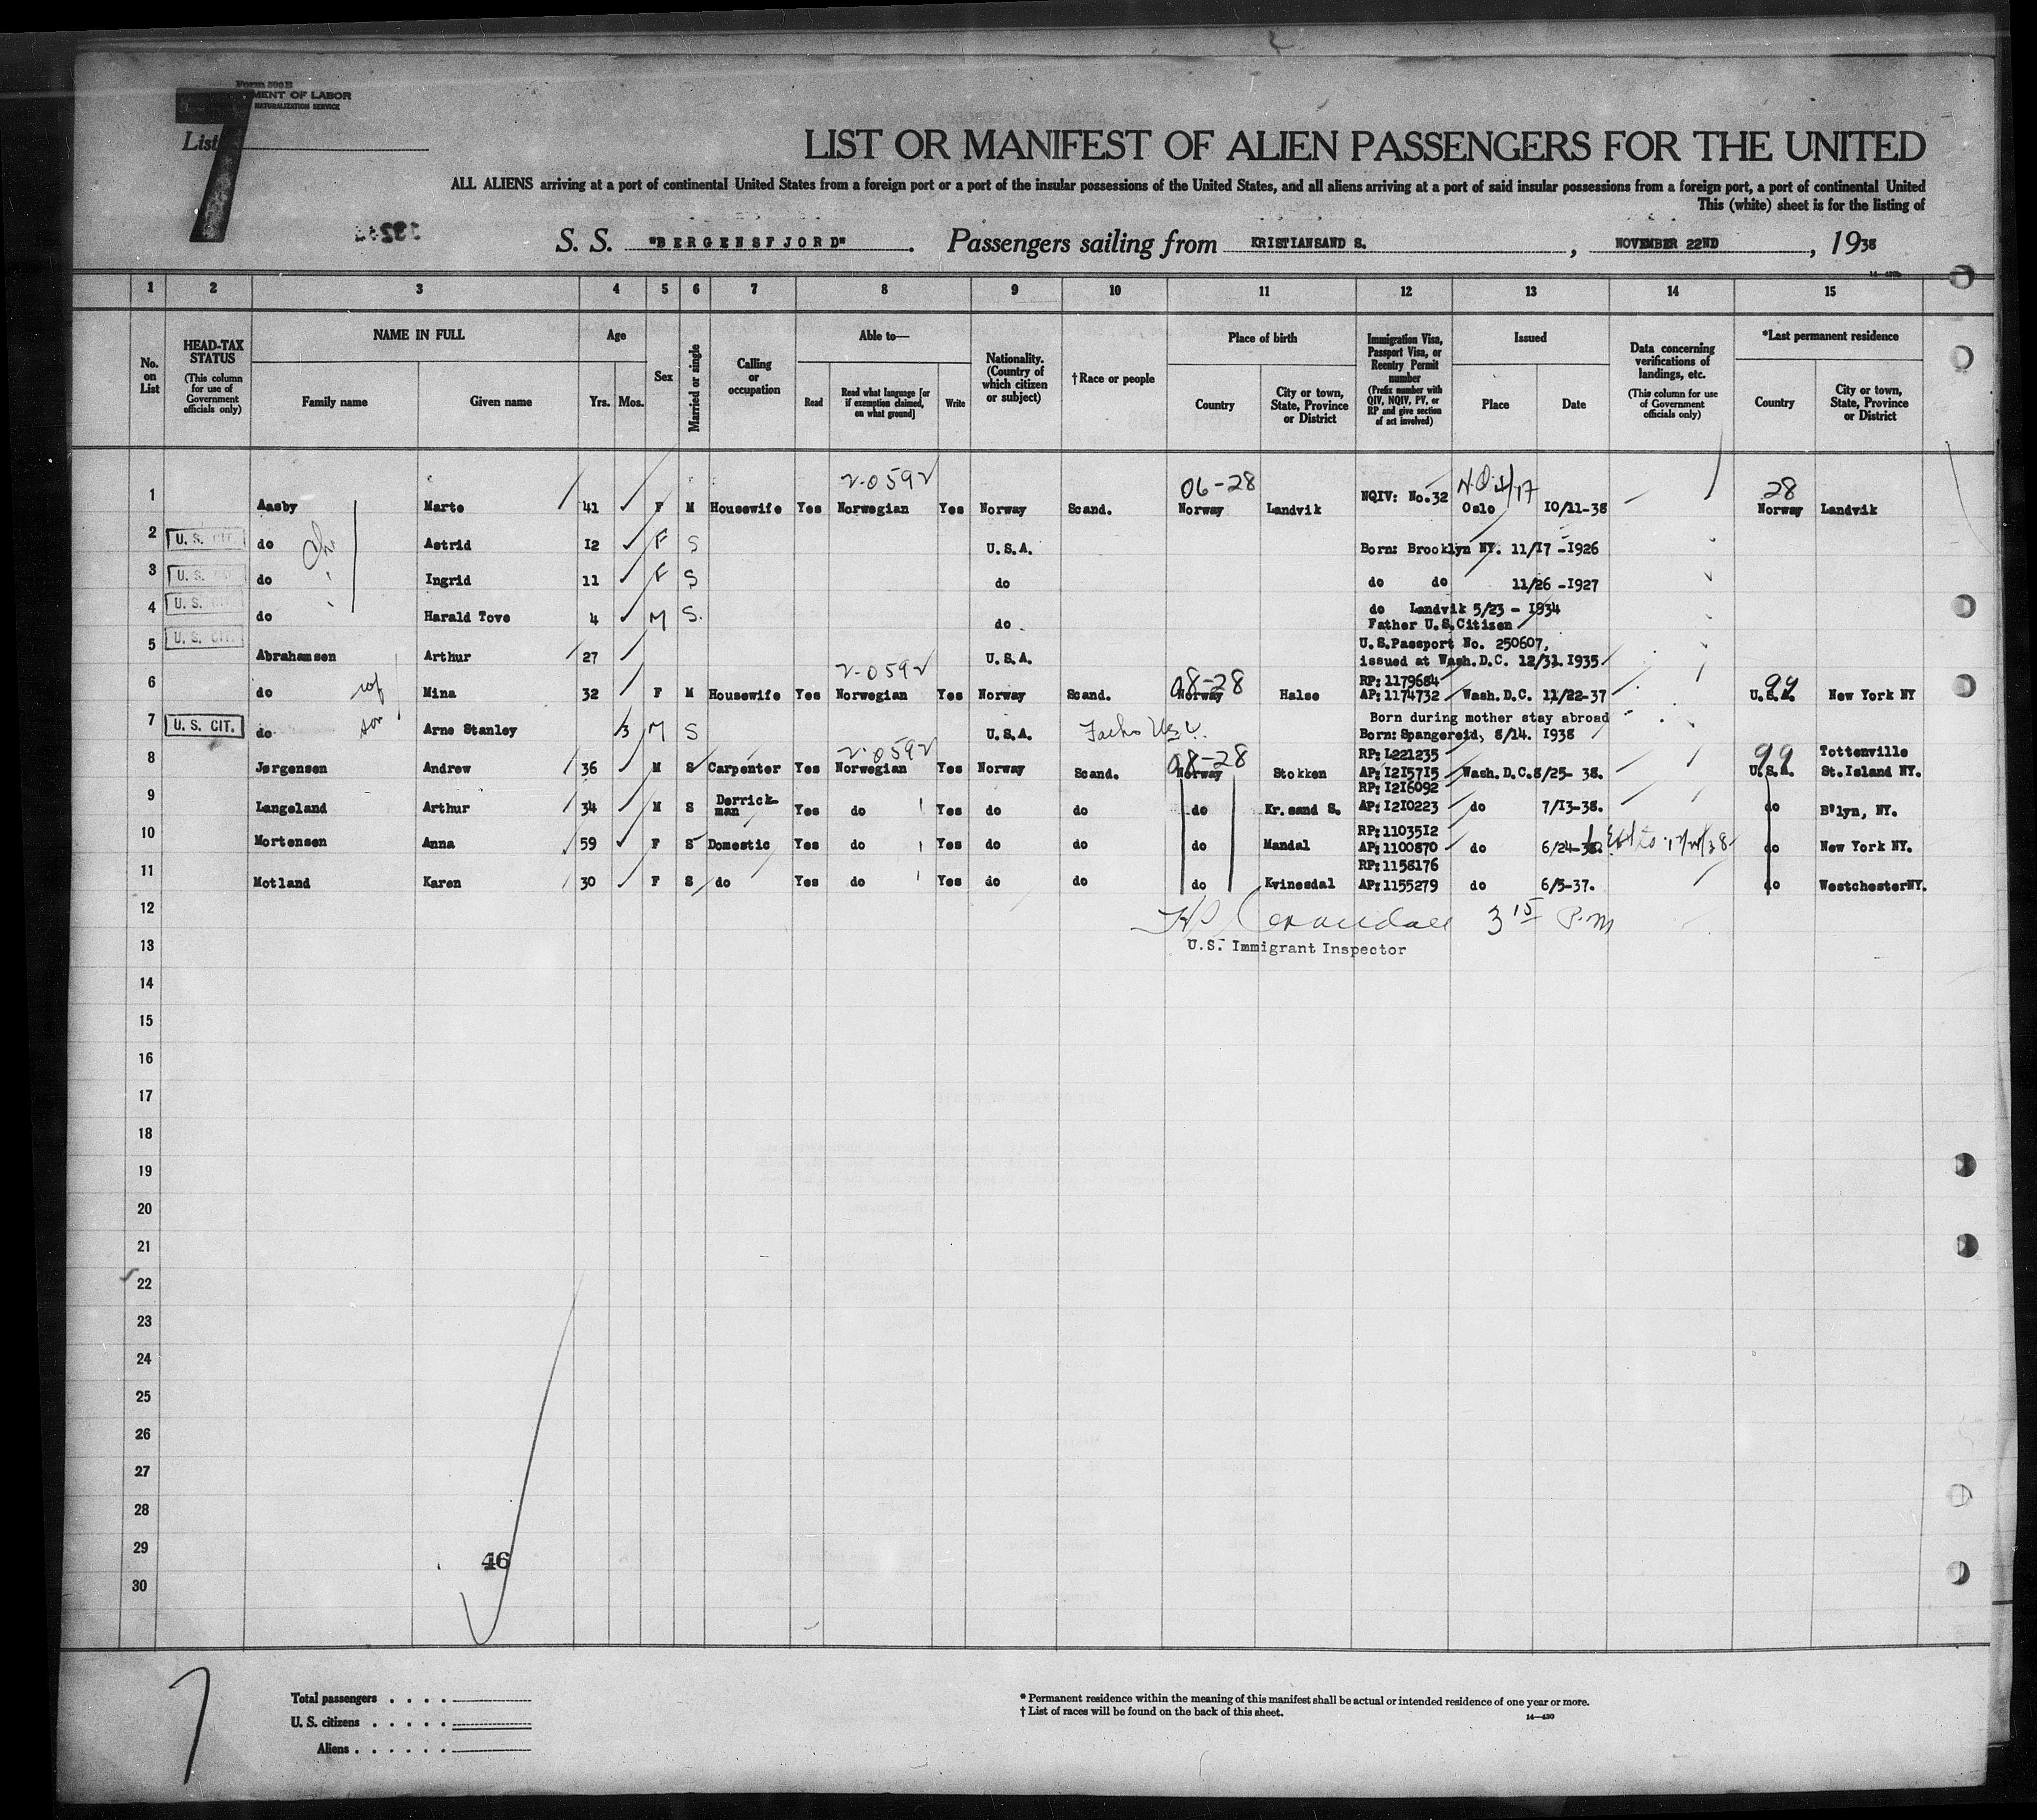 Form 500 B
MENT OF LABOR
NATURALIZATION SERVICE
List 7
LIST OR MANIFEST OF ALIEN PASSENGERS FOR THE UNITED
ALL ALIENS arriving at a port of continental United States from a foreign port or a port of the insular possessions of the United States, and all aliens arriving at a port of said insular possessions from a foreign port, a port of continental United
This (white) sheet is for the listing of
S. S. "BERGENSFJORD". Passengers sailing from KRISTIANSAND S., NOVEMBER 22ND, 1938
1 2 3 4 5 6 7 8 9 10 11 12 13 14 15
No. on List
HEAD-TAX STATUS
(This column for use of Government officials only)
NAME IN FULL
Family name
Given name
Age
Yrs. Mos.
Sex
Married or single
Calling or occupation
Able to—
Read
Read what language [or if exemption claimed, on what ground]
Write
Nationality. (Country of which citizen or subject)
†Race or people
Place of birth
Country
City or town, State, Province or District
Immigration Visa, Passport Visa, or Reentry Permit number
(Prefix number with QIV, NQIV, PV, or RP and give section of act involved)
Issued
Place
Date
Data concerning verifications of landings, etc.
(This column for use of Government officials only)
*Last permanent residence
Country
City or town, State, Province or District
2-0592 06-28 28
1 Aasby Marte 41 F M Housewife Yes Norwegian Yes Norway Scand. Norway Landvik NQIV: No.32 Oslo 10/11-38 Norway Landvik
2 U. S. CIT. do Astrid 12 F S U.S.A. Born: Brooklyn NY. 11/17-1926
3 U. S. CIT. do Ingrid 11 F S do do do 11/26-1927
4 U. S. CIT. do Harald Tove 4 M S. do do Landvik 5/23-1934
Father U.S.Citizen
5 U. S. CIT. Abrahamsen Arthur 27 U.S.A. U.S.Passport No. 250607,
issued at Wash.D.C. 12/31.1935
2-0592 08-28 RP:1179684 99
6 do wf Mina 32 F M Housewife Yes Norwegian Yes Norway Scand. Norway Halse AP:1174732 Wash.D.C. 11/22-37 U.S.A. New York NY
Born during mother stay abroad
7 U. S. CIT. do son Arne Stanley 3 M S U.S.A. Born: Spangereid, 8/14. 1938
2-0592 08-28 RP:1221235 99 Tottenville
8 Jørgensen Andrew 36 M S Carpenter Yes Norwegian Yes Norway Scand. Norway Stokken AP:1215715 Wash.D.C. 8/25-38. U.S.A. St.Island NY.
RP:1216092
9 Langeland Arthur 34 M S Derrick-man Yes do Yes do do do Kr.sand S. AP:1210223 do 7/13-38. do B'lyn, NY.
RP:1103512
10 Mortensen Anna 59 F S Domestic Yes do Yes do do do Mandal AP:1100870 do 6/24-36. Ext to do New York NY.
RP:1158176
11 Motland Karen 30 F S do Yes do Yes do do do Kvinesdal AP:1155279 do 6/5-37. do WestchesterNY.
12 3 15 P.M
13 U.S. Immigrant Inspector
14
15
16
17
18
19
20
21
22
23
24
25
26
27
28
29
46
30
7
Total passengers . . . .
U. S. citizens . . . . .
Aliens . . . . . .
* Permanent residence within the meaning of this manifest shall be actual or intended residence of one year or more.
† List of races will be found on the back of this sheet.
14—430